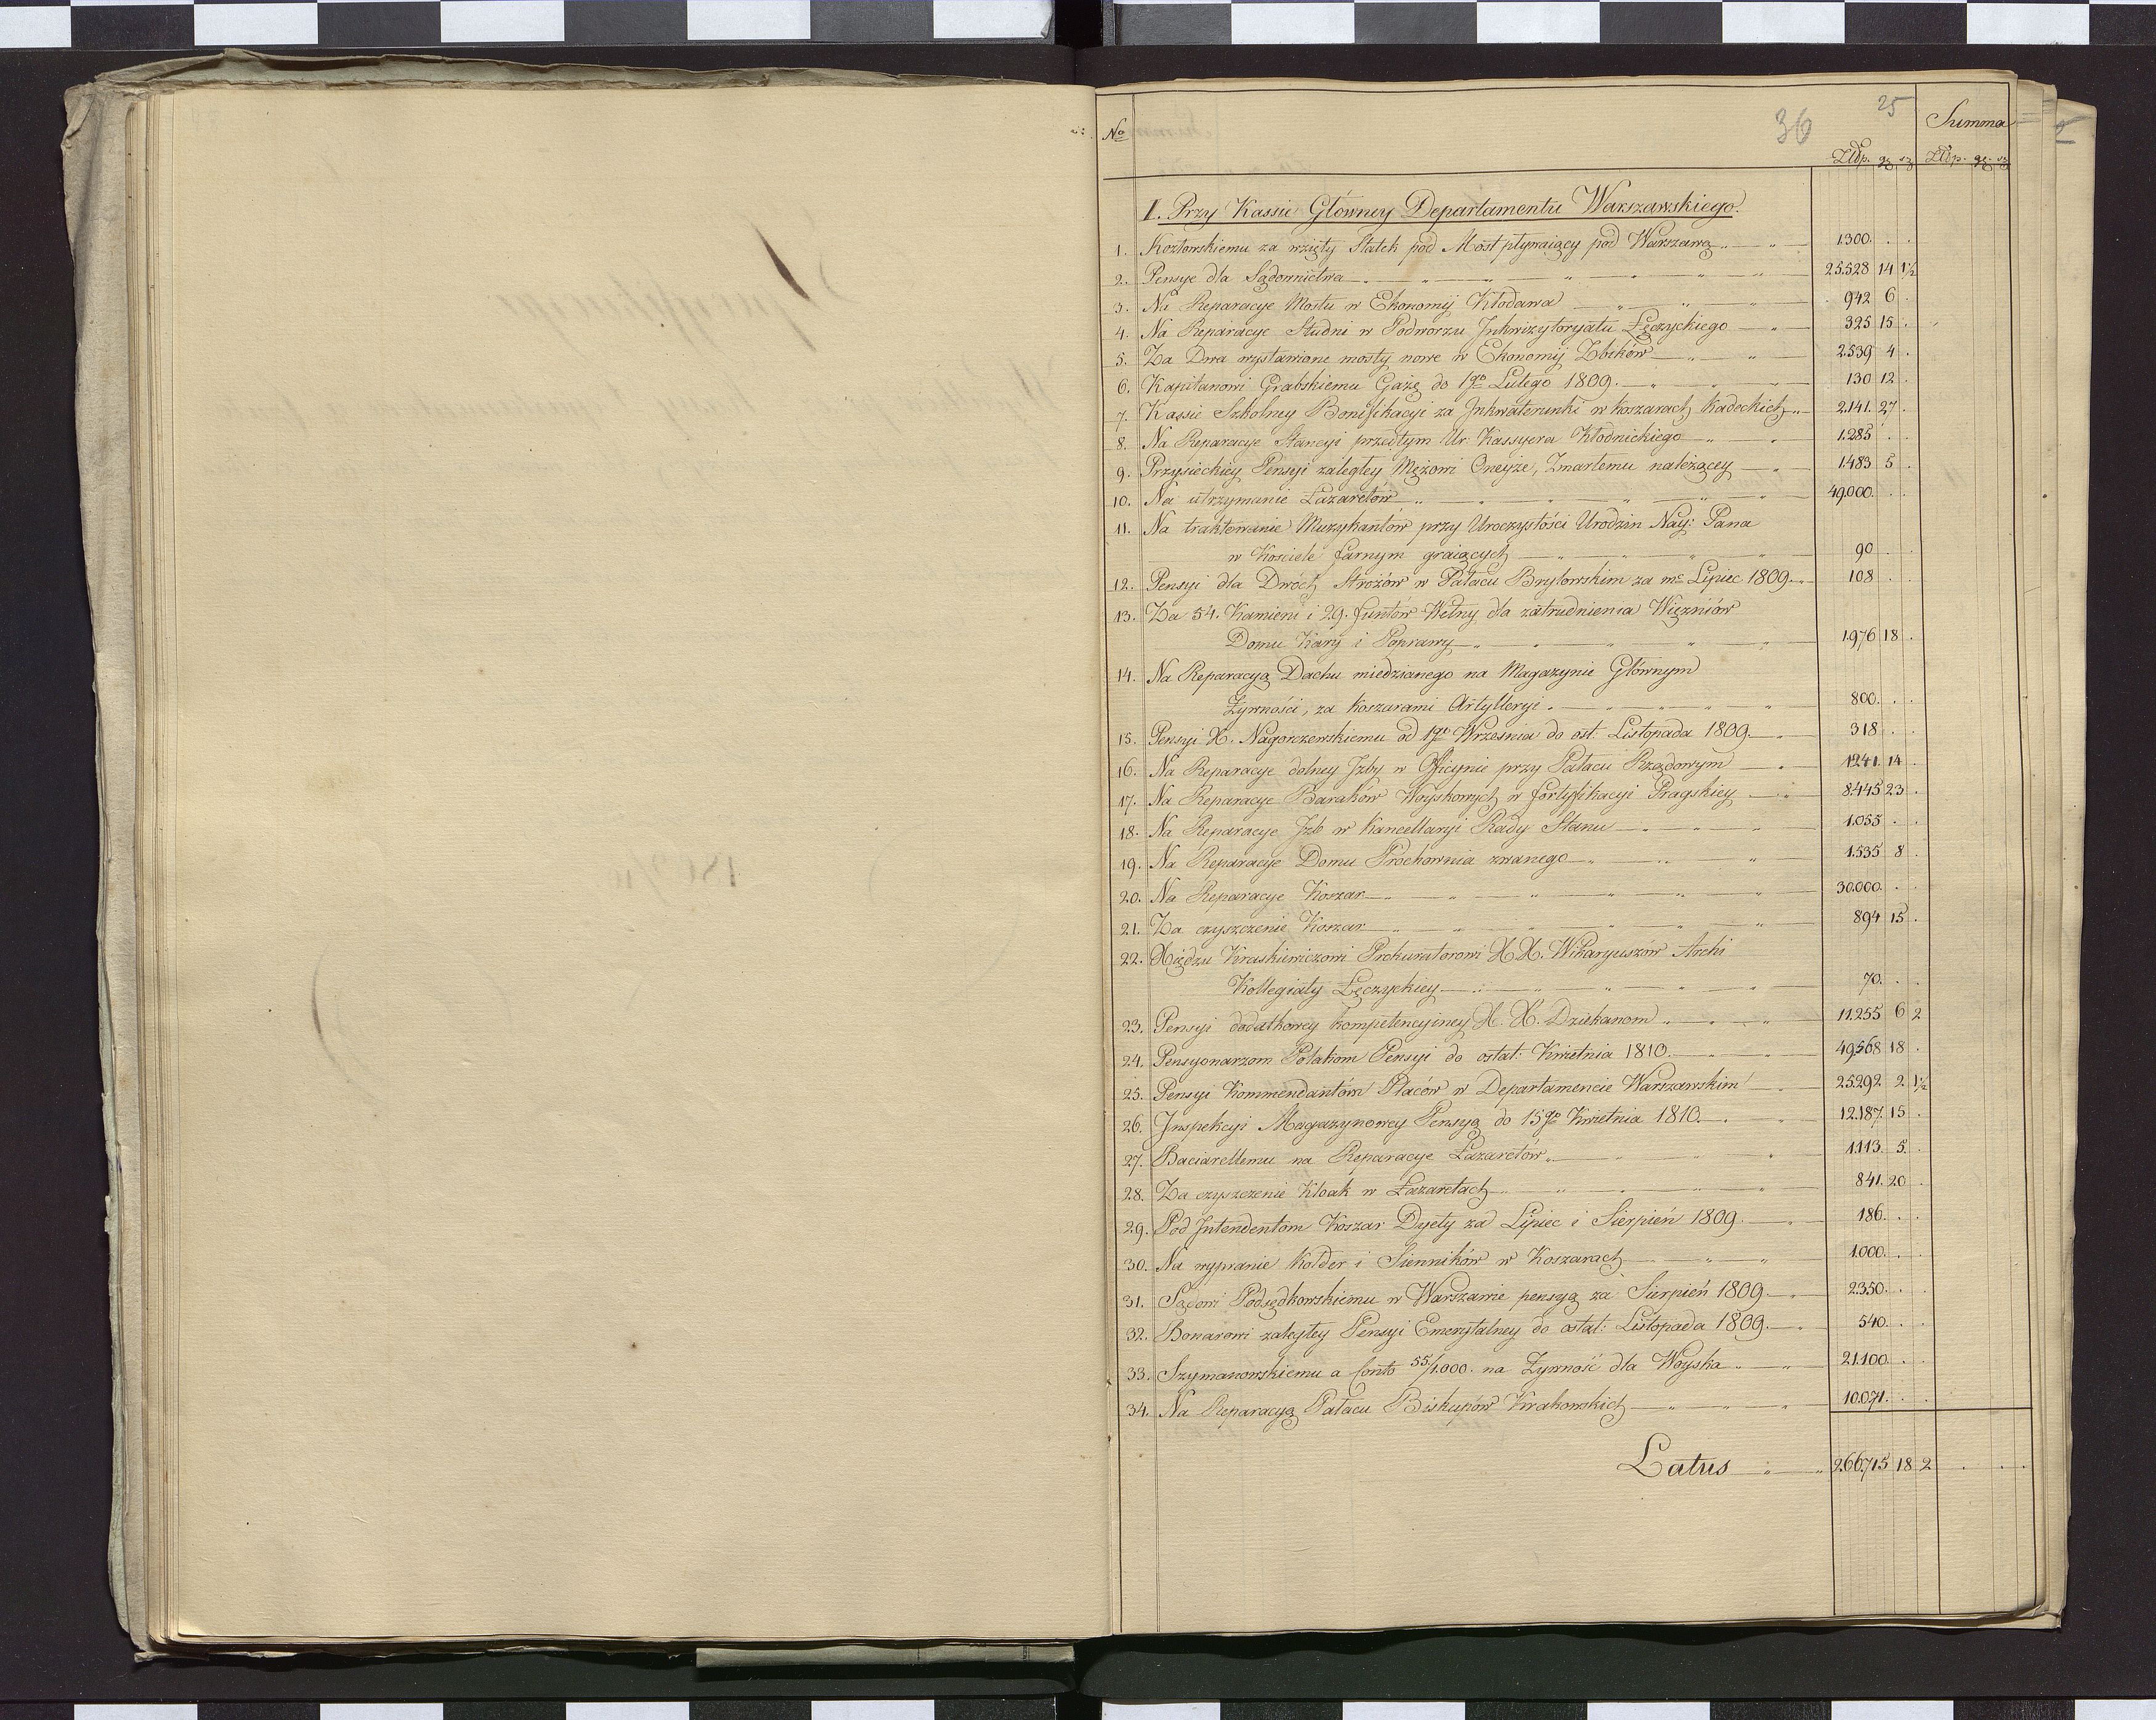 36
25
No
Summa
Złłp. gr. sz.
Złłp. gr. sz.
I. Przy Kassie Główney Departamentu Warszawskiego.
1. Kozłowskiemu za wzięty Statek pod Most pływaiący pod Warszawą 1300. . .
2. Pensye dla Sądownictwa 25.528 14 1½
3. Na Reparacye Mostu w Ekonomij Kłodawa 942 6 .
4. Na Reparacye Studni w Podworzu Inkwizytoryatu Łęczyckiego 325 15 .
5. Za Dwa wystawione mosty nowe w Ekonomij Zbików 2.539 4 .
6. Kapitanowi Grabskiemu Gażę do 1go Lutego 1809. 130 12 .
7. Kassie Szkolney Bonifikacyi za Inkwaterunki w koszarach Kadeckich 2.141. 27 .
8. Na Reparacye Stancyi przedtym Ur: Kassyera Kłodnickiego 1.285 . .
9. Przysieckiey Pensyi zaległey Mężowi Oneyże, Zmarłemu należącey 1.483 5 .
10. Na utrzymanie Lazaretów 49.000. . .
11. Na traktowanie Muzykantów przy Uroczystości Urodzin Nay: Pana
w Kościele farnym graiących 90 . .
12. Pensyi dla Dwóch Stróżów w Pałacu Brylowskim za mc Lipiec 1809. 108 . .
13. Za 54. Kamieni i 29. funtów Wełny dla zatrudnienia Więzniów
Domu Kary i Poprawy 1.976 18 .
14. Na Reparacyą Dachu miedzianego na Magazynie Głównym
Żywności, za Koszarami Artylleryi 800. . .
15. Pensyi X. Nagorzewskiemu od 1go Września do ost. Listopada 1809. 318 . .
16. Na Reparacye dolney Izby w Oficynie przy Pałacu Rządowym 1.241. 14 .
17. Na Reparacye Baraków Woyskowych w fortyfikacyi Pragskiey 8.445 23 .
18. Na Reparacye Izb w Kancellaryi Rady Stanu 1.055 . .
19. Na Reparacye Domu Prochownia zwanego 1.535 8 .
20. Na Reparacye Koszar 30.000. . .
21. Za czyszczenie Koszar 894 15 .
22. Xiędzu Kraskiewiczowi Prokuratorowi X.X. Wikaryuszów Archi
Kollegiaty Łęczyckiey 70. . .
23. Pensyi dodatkowey kompetencyiney X. X. Dziekanom 11.255 6 2
24. Pensyonarzom Polakom Pensyi do ostat: Kwietnia 1810. 49.568 18 .
25. Pensyi Kommendantów Placów w Departamencie Warszawskim 25.292 2 1½
26. Inspekcyi Magazynowey Pensyą do 15go Kwietnia 1810. 12.187. 15 .
27. Baciarellemu na Reparacye Lazaretów 1.113. 5. .
28. Za czyszczenie Kloak w Lazaretach 841. 20 .
29. Pod Intendentom Koszar Dyety za Lipiec i Sierpień 1809. 186. . .
30. Na wypranie Kołder i Sienników w Koszarach 1.000. . .
31. Sądowi Podsędkowskiemu w Warszawie pensyą za Sierpień 1809. 2.350. . .
32. Bonarowi zaległey Pensyi Emerytalney do ostat: Listopada 1809. 540. . .
33. Szymanowskiemu a Conto 55/1.000. na Żywność dla Woyska 21.100. . .
34. Na Reparacyą Pałacu Biskupów Krakowskich 10.071. . .
Latus 266.715 18 2 . . .